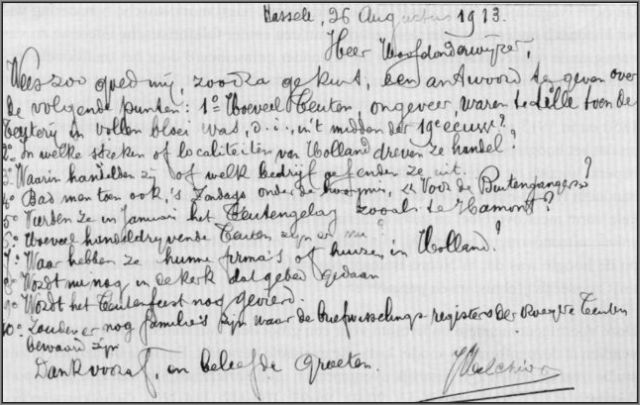 Hasselt, 26 Augustus 1913.
Heer Hoofdonderwijzer,
Wees zoo goed mij, zoodra ge kunt, een antwoord te geven over
de volgende punten: 1º Hoeveel Teuten, ongeveer, waren te Lille toen de
Teuterij in vollen bloei was, d.i., in 't midden der 19e eeuw?
2º In welke streken of localiteiten van Holland dreven ze handel?
3º Waarin handelden zij of welk bedrijf oefenden ze uit.
4º Bad men toen ook, 's Zondags onder de hoogmis, « Voor de Buitengangers »?
5º Vierden ze in januari het Teutengelag zooals te Hamont?
6º Hoeveel handeldrijvende Teuten zijn er nu?
7º Waar hebben ze hunne firma's of huizen in Holland?
8º Wordt nu nog in de kerk dat gebed gedaan
9º Wordt het Teutenfeest nog gevierd.
10º Zouden er nog familie's zijn waar de briefwisseling-registers der Teuten
bewaard zijn
Dank vooraf, en beleefde groeten.